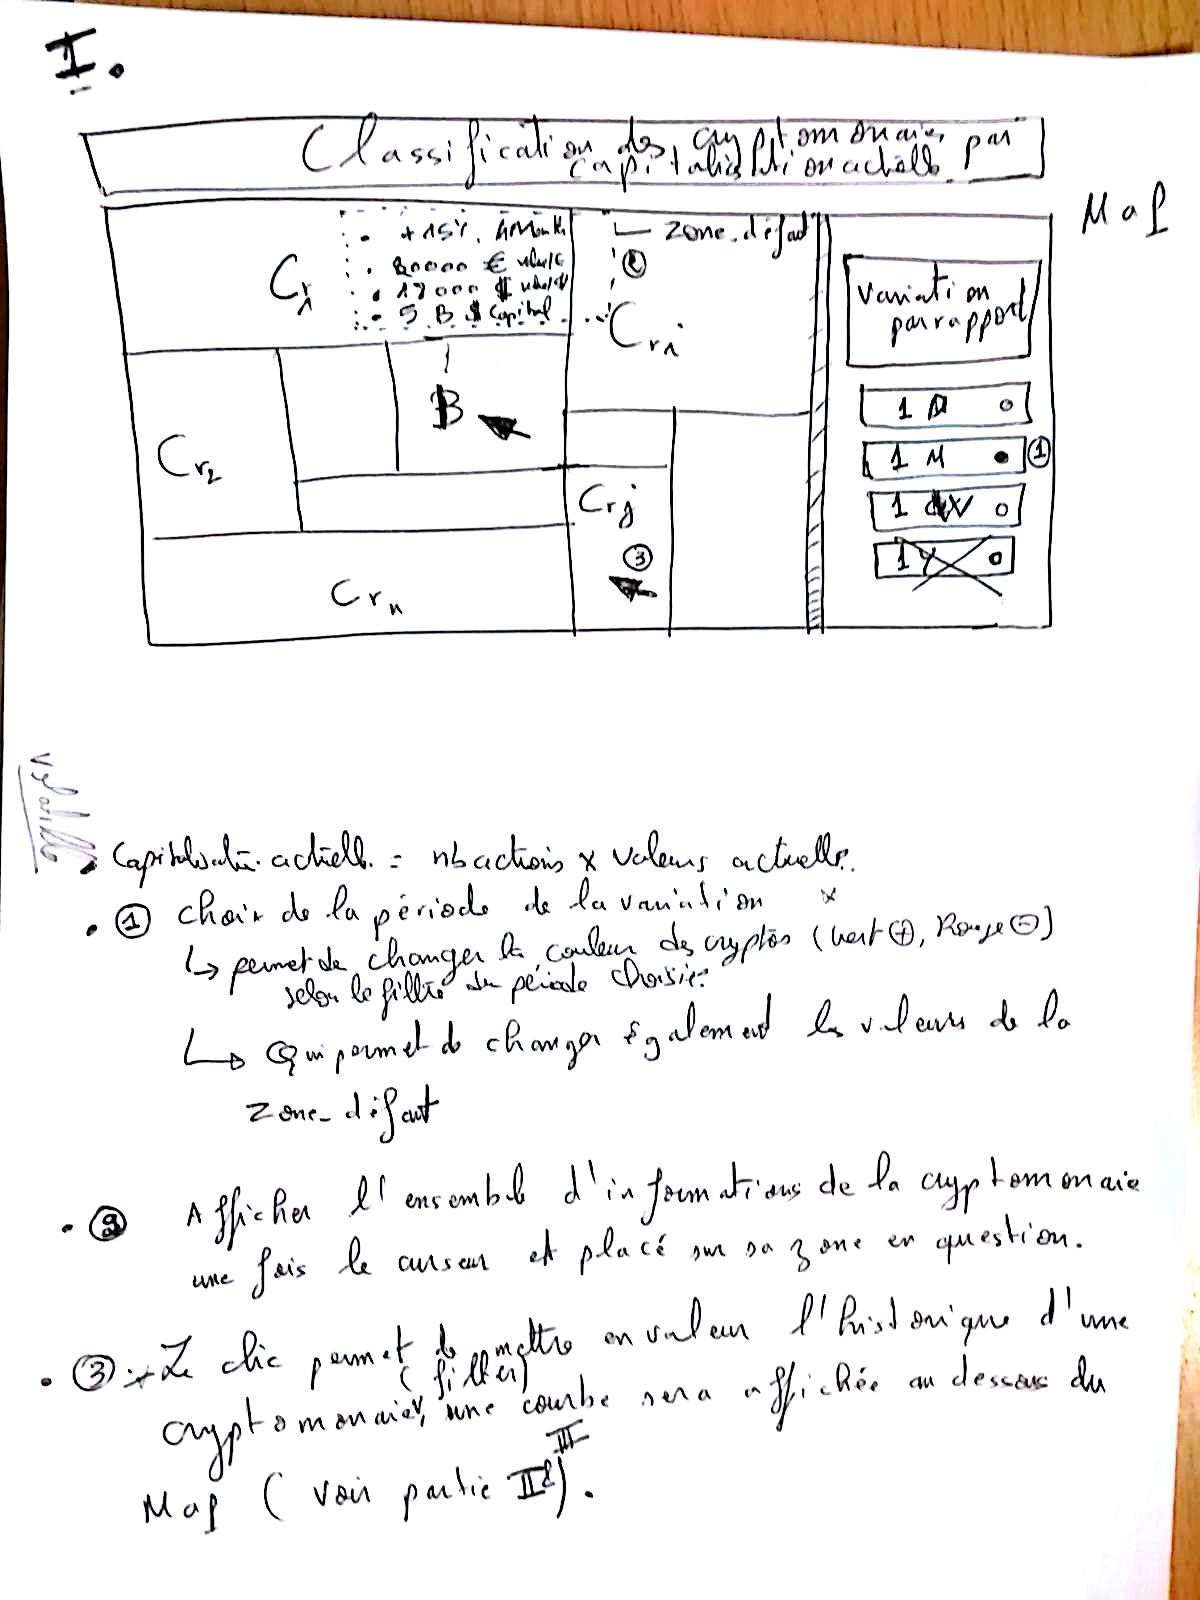 I.
Classification des cryptomonaies par
capitalisation actuelle
Map
+ 15%, 
20000 € 
17000 $ 
5 B $ Capital
Cr1
zone_défaut
2
Cr1
B
Cr2
Crj
3
Crn
Variation
par rapport
1 D
1 M
1
1 W
1 Y
Capitalisation actuelle = nb actions x valeurs actuelle.
1 choix de la période de la variation
↳ permet de changer la couleur des cryptos (vert +, Rouge -)
selon le filtre de période choisie.
↳ Qui permet de changer également les valeurs de la
zone_défaut
2 Afficher l'ensemble d'informations de la cryptomonaie
une fois le curseur est placé sur sa zone en question.
3 Le clic permet de mettre en valeur l'historique d'une
(filter)
cryptomonaie, une courbe sera affichée au dessous du
III
Map ( voir partie II).